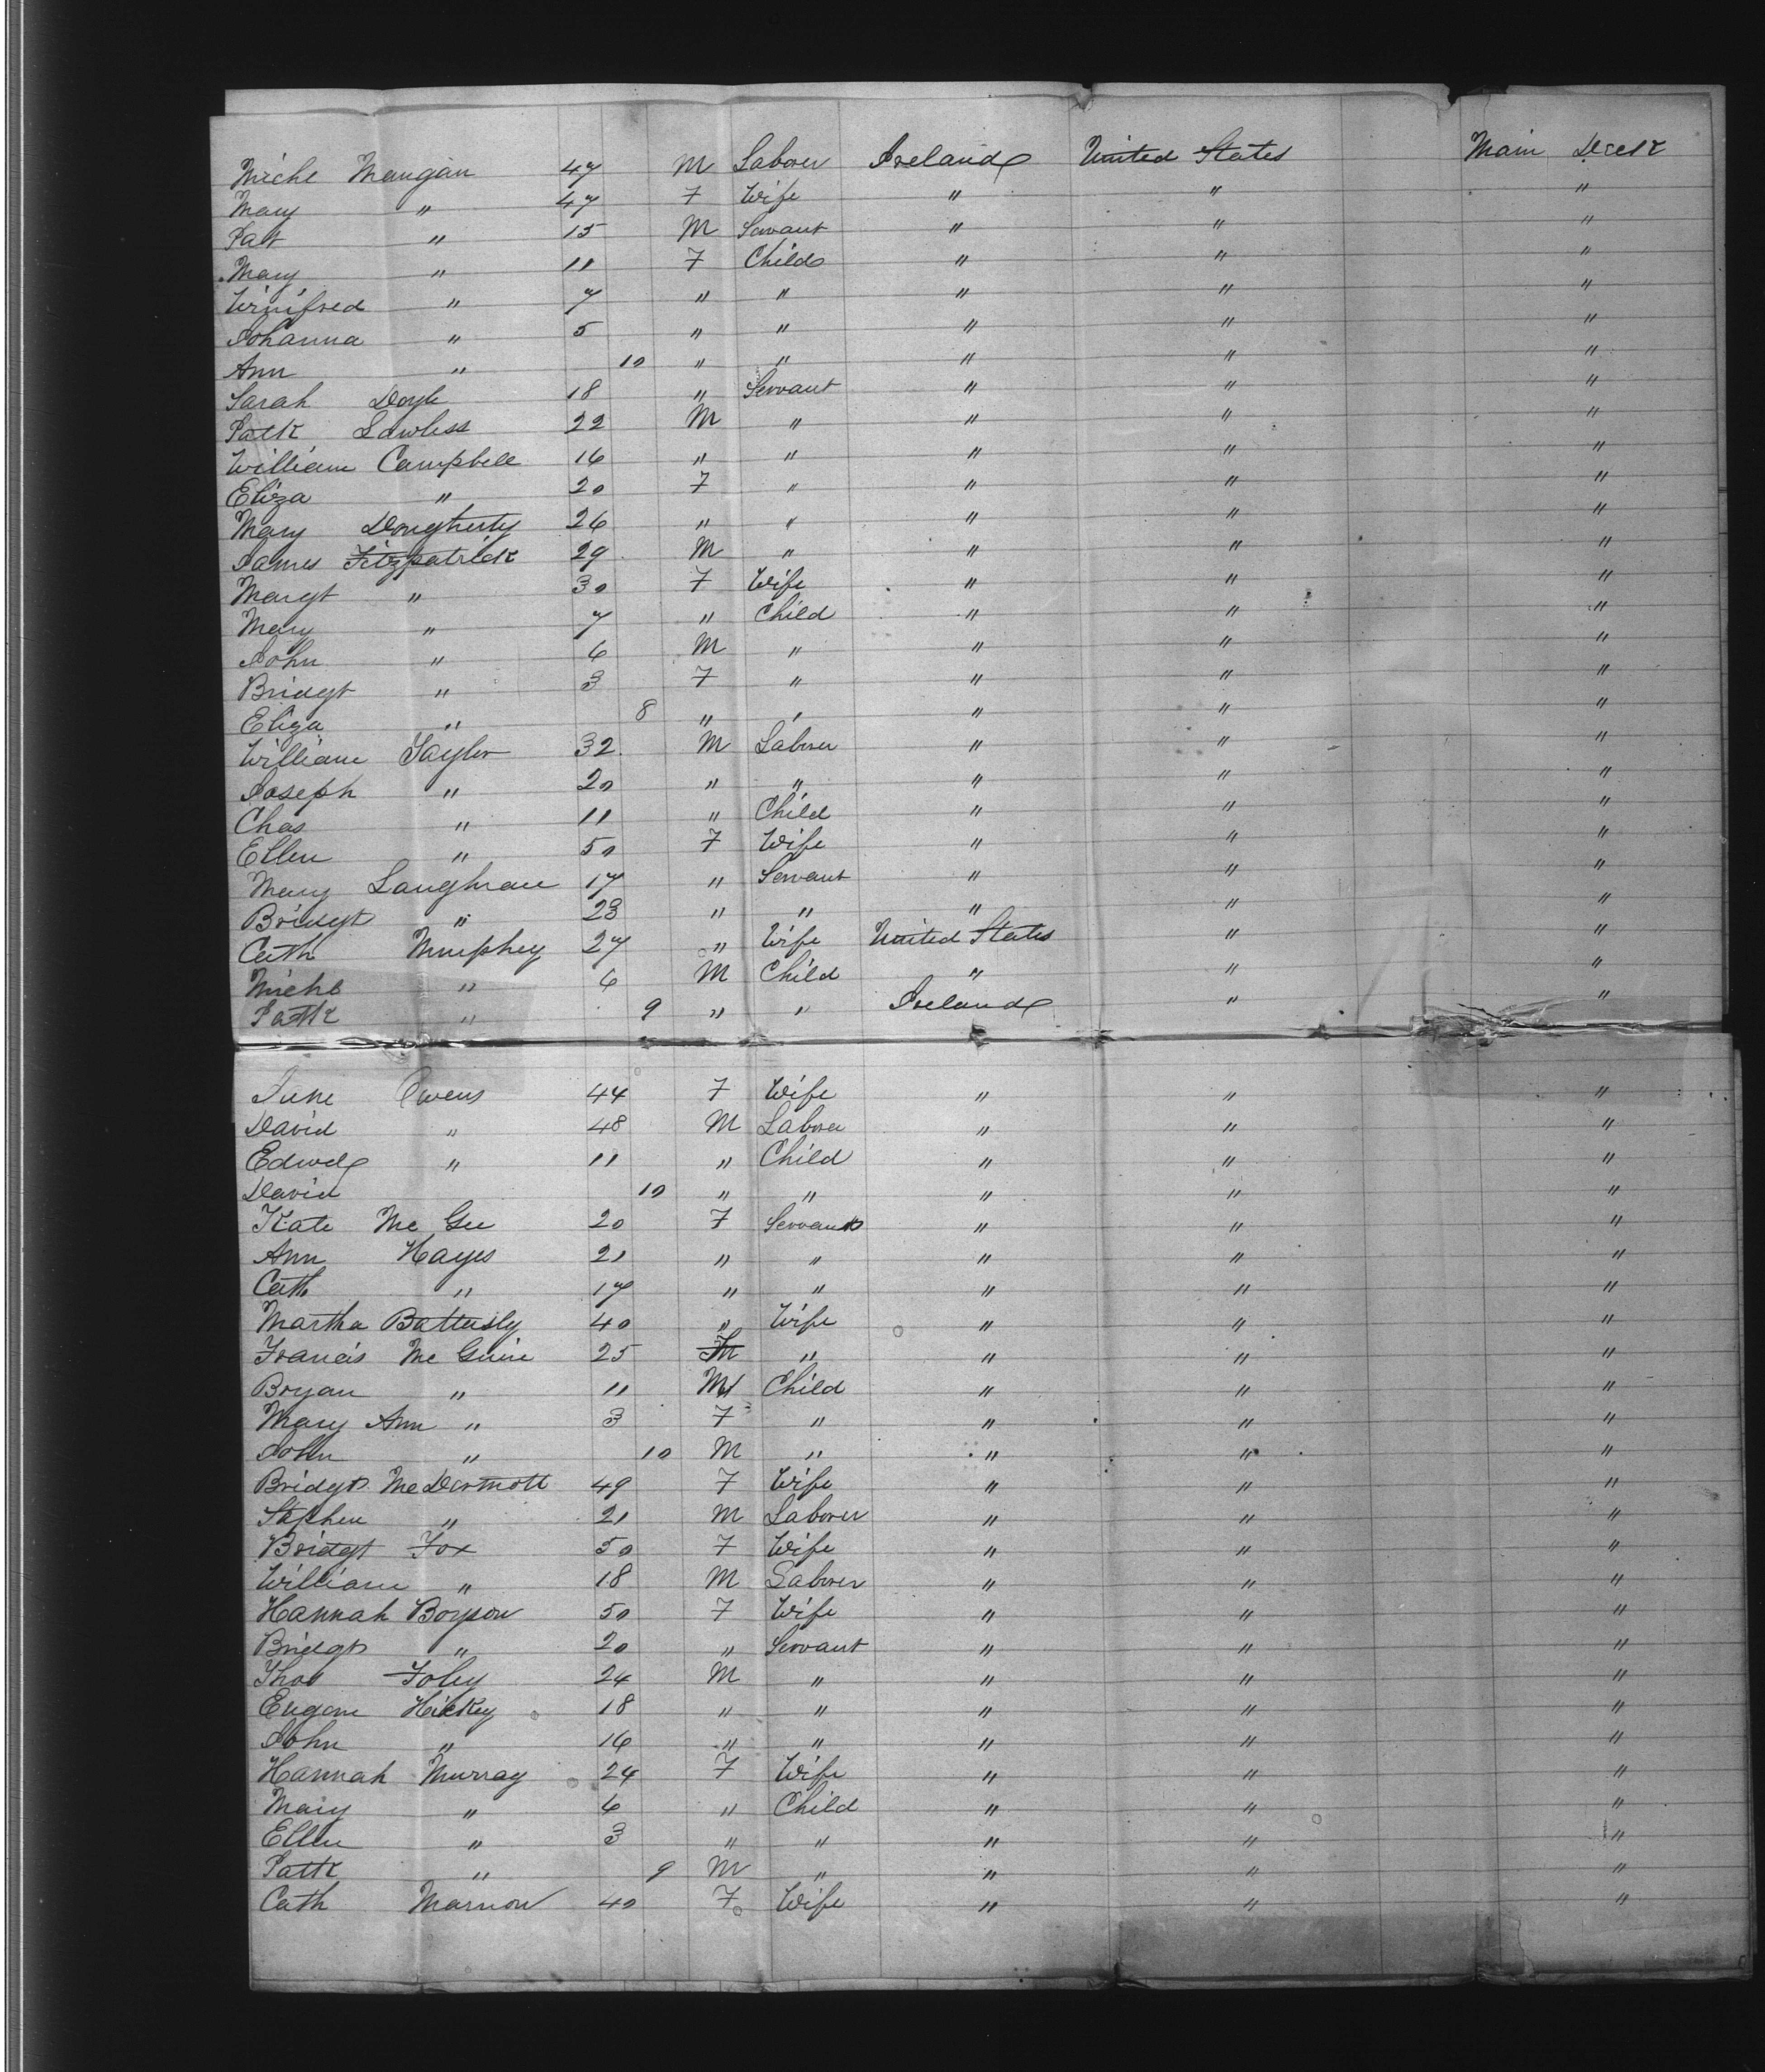 Michl Mangan 47 M Laborer Ireland United States Main Deck
Mary " 47 F Wife " " "
Pat " 15 M Servant " " "
Mary " 11 F Child " " "
Winifred " 7 " " " " "
Johanna " 5 " " " " "
Ann " 10 " " " " "
Sarah Doyle 18 " Servant " " "
Patk Lawless 22 M " " " "
William Campbell 16 " " " " "
Eliza " 20 F " " " "
Mary Dougherty 26 " " " " "
James Fitzpatrick 29 M " " " "
Margt " 30 F Wife " " "
Mary " 7 " Child " " "
John " 6 M " " " "
Bridgt " 3 F " " " "
Eliza " 8 " " " " "
William Taylor 32 M Laborer " " "
Joseph " 20 " " " " "
Chas " 11 " Child " " "
Ellen " 50 F Wife " " "
Mary Laughran 17 " Servant " " "
Bridgt " 23 " " " " "
Cath Murphey 27 " Wife United States " "
Michl " 6 M Child " " "
Patk " 9 " " Ireland " "
Jane Owens 44 F Wife " " "
David " 48 M Laborer " " "
Edwd " 11 " Child " " "
David 10 " " " " "
Kate Mc Gee 20 F Servant " " "
Ann Hayes 21 " " " " "
Cath " 17 " " " " "
Martha Battersly 40 " Wife " " "
Francis Mc Guire 25 " " " "
Bryan " 11 M Child " " "
Mary Ann " 3 F " " " "
John " 10 M " " " "
Bridgt McDermott 49 F Wife " " "
Stephen " 21 M Laborer " " "
Bridgt Fox 50 F Wife " " "
William " 18 M Laborer " " "
Hannah Boyson 50 F Wife " " "
Bridgt " 20 " Servant " " "
Thos Foley 24 M " " " "
Eugene Hickey 18 " " " " "
John " 16 " " " " "
Hannah Murray 24 F Wife " " "
Mary " 6 " Child " " "
Ellen " 3 " " " " "
Patk " 9 M " " " "
Cath Marnow 40 F Wife " " "